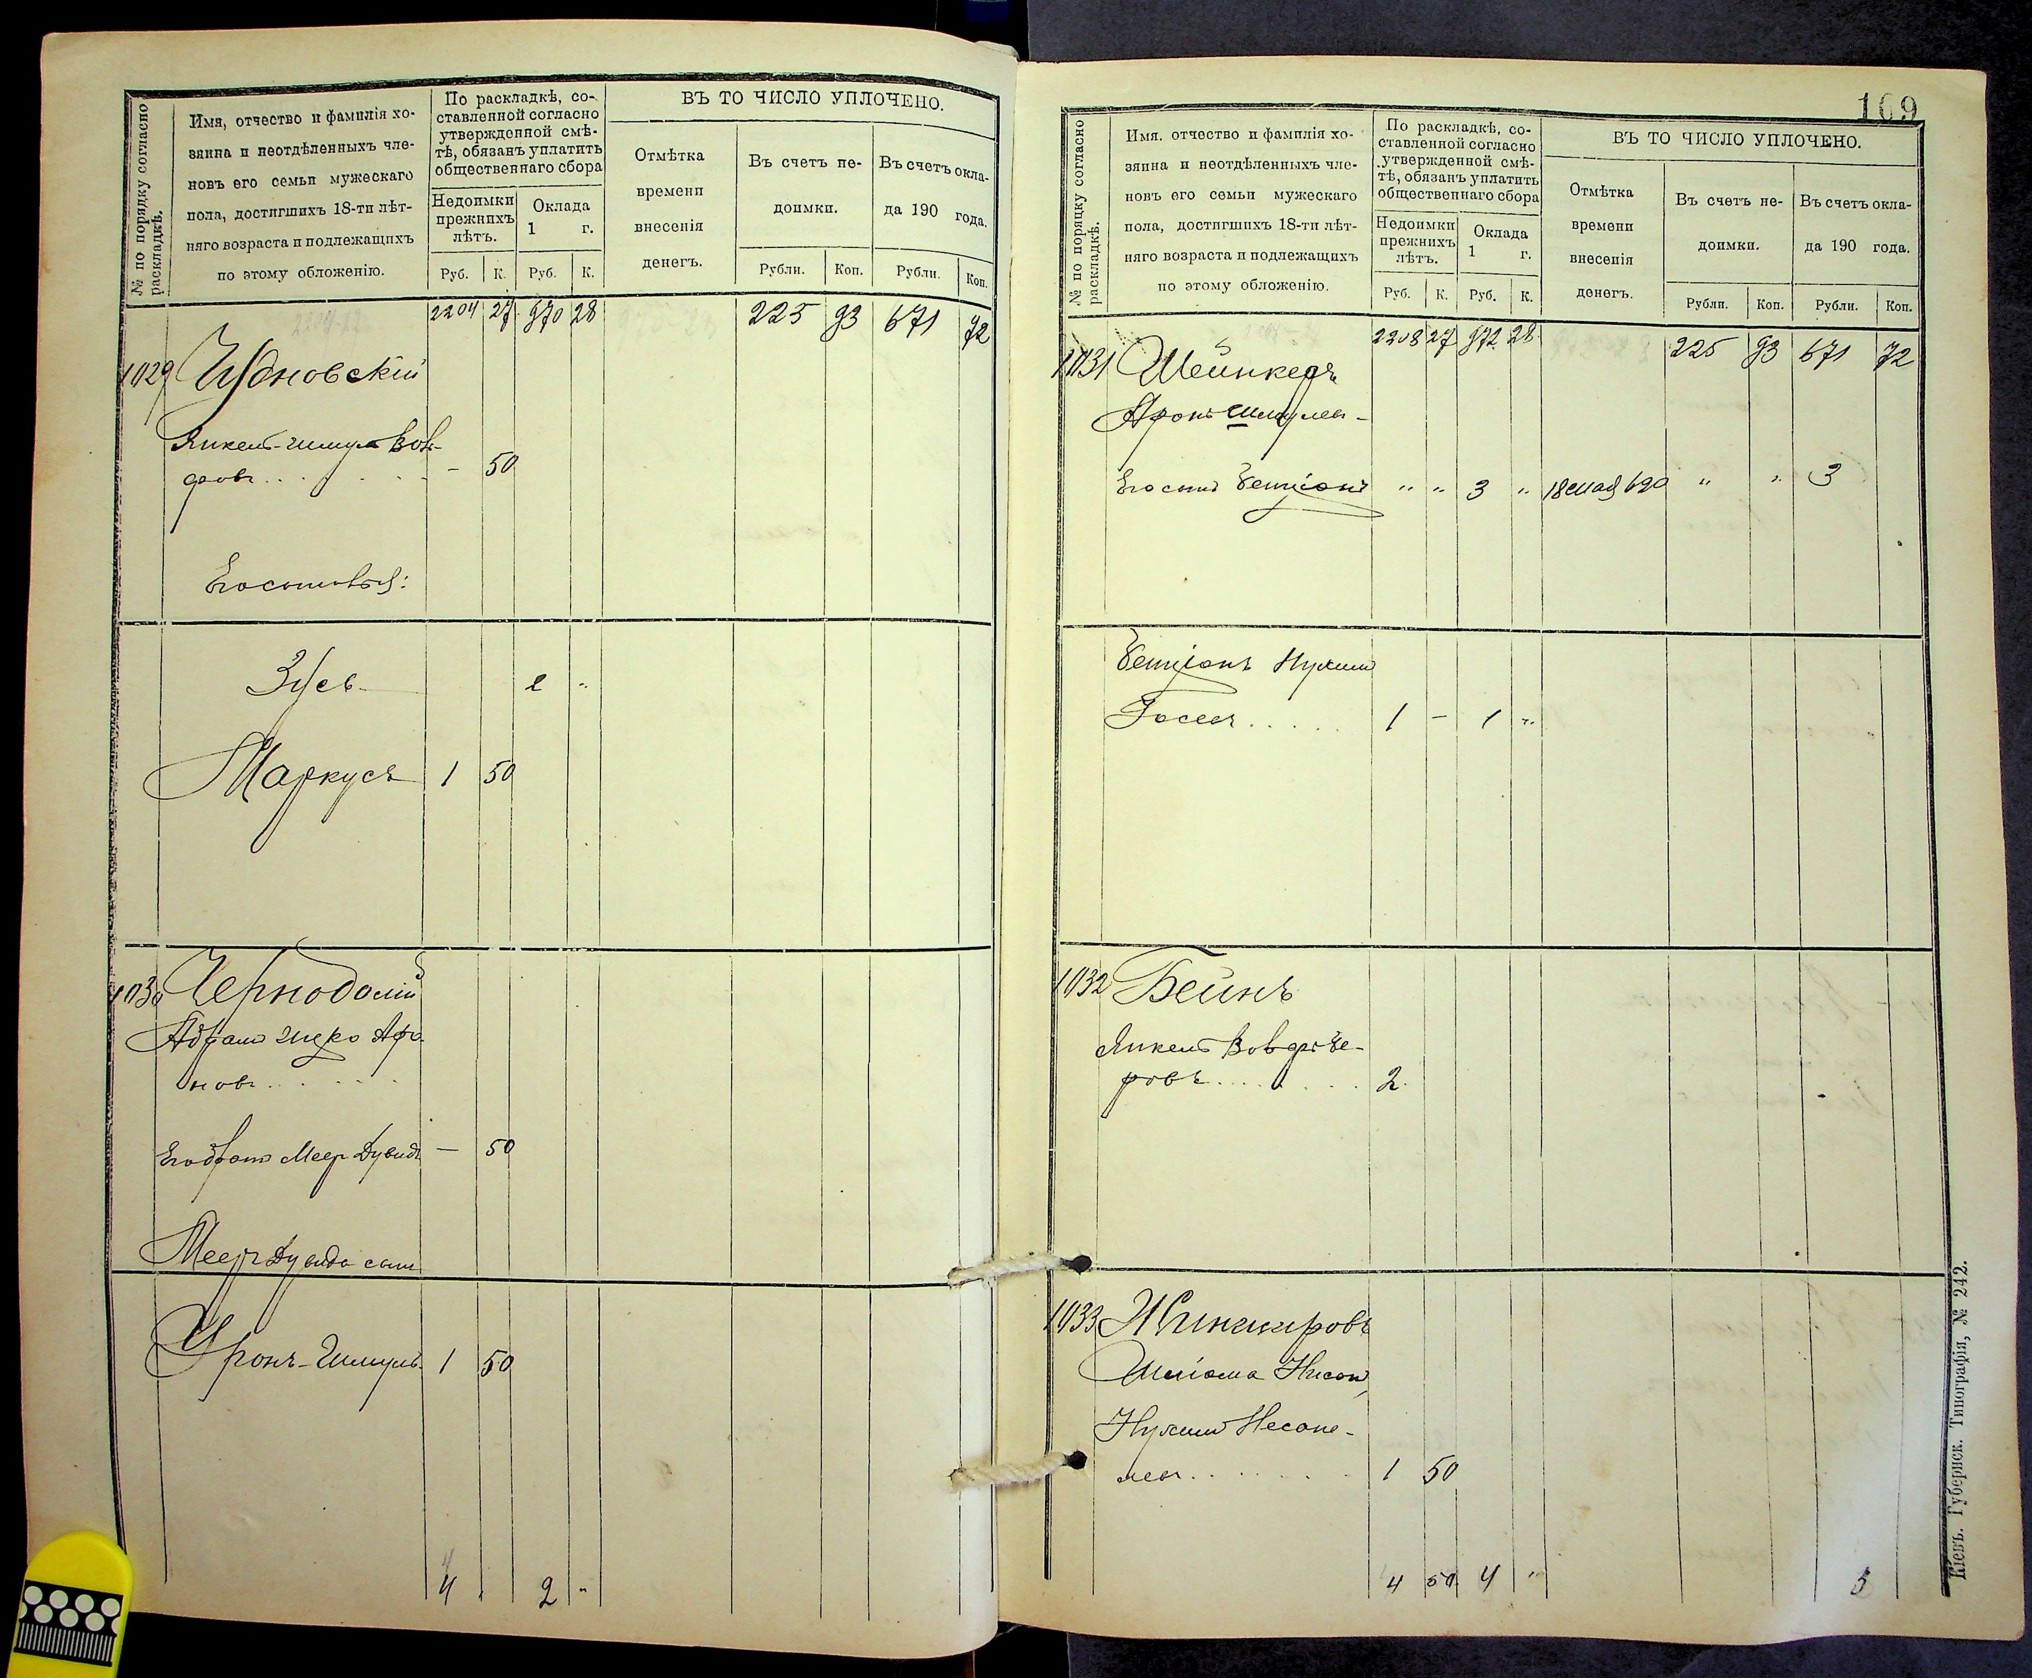 № по порядку согласно раскладкѣ.
Имя, отчество и фамилія хо-
зяина и неотдѣленныхъ чле-
новъ его семьи мужескаго
пола, достигшихъ 18-ти лѣт-
няго возраста и подлежащихъ
по этому обложенію.
По раскладкѣ, со-
ставленной согласно
утвержденной смѣ-
тѣ, обязанъ уплатить
общественнаго сбора
Недоимки
прежнихъ
лѣтъ.
Оклада
1 г.
Руб. К. Руб. К.
ВЪ ТО ЧИСЛО УПЛОЧЕНО.
Отмѣтка
времени
внесенія
денегъ.
Въ счетъ не-
доимки.
Въ счетъ окла-
да 190 года.
Рубли. Коп. Рубли. Коп.
2204 27 970 28 225 93 671 72
1029 Чудновскій
Янкель-Шмуль Вов-
 — 50
Его сыновья:
Зусь 2 "
Маркусъ 1 50
1030
Абрамъ Шеро Аро-
новъ . . . . .
Его братъ Меер Дувидъ — 50
Меер Дувида сынъ
Уронъ-Шмуль 1 50
4 2 "
109
№ по порядку согласно раскладкѣ.
Имя. отчество и фамилія хо-
зяина и неотдѣленныхъ чле-
новъ его семьи мужескаго
пола, достигшихъ 18-ти лѣт-
няго возраста и подлежащихъ
по этому обложенію.
По раскладкѣ, со-
ставленной согласно
утвержденной смѣ-
тѣ, обязанъ уплатить
общественнаго сбора
Недоимки
прежнихъ
лѣтъ.
Оклада
1 г.
Руб. К. Руб. К.
ВЪ ТО ЧИСЛО УПЛОЧЕНО.
Отмѣтка
времени
внесенія
денегъ.
Въ счетъ не-
доимки.
Въ счетъ окла-
да 190 года.
Рубли. Коп. Рубли. Коп.
2208 27 972 28 225 93 671 72
1031 Шейнкеръ
Аронъ Шмулев-
Его сынъ Бенціонъ " " 3 " 18 мая 690 " " 3
Бенціонъ Нухим
Іосевъ . . . . . 1 — 1 "
1032 Бейнъ
Янкель Вов
ровъ . . . . . . 2
1033
Шліома Нисон
Нухим
левъ . . . . . . 1 50
4 50 4 " 3
Кіевъ. Губернск. Типографія, № 242.